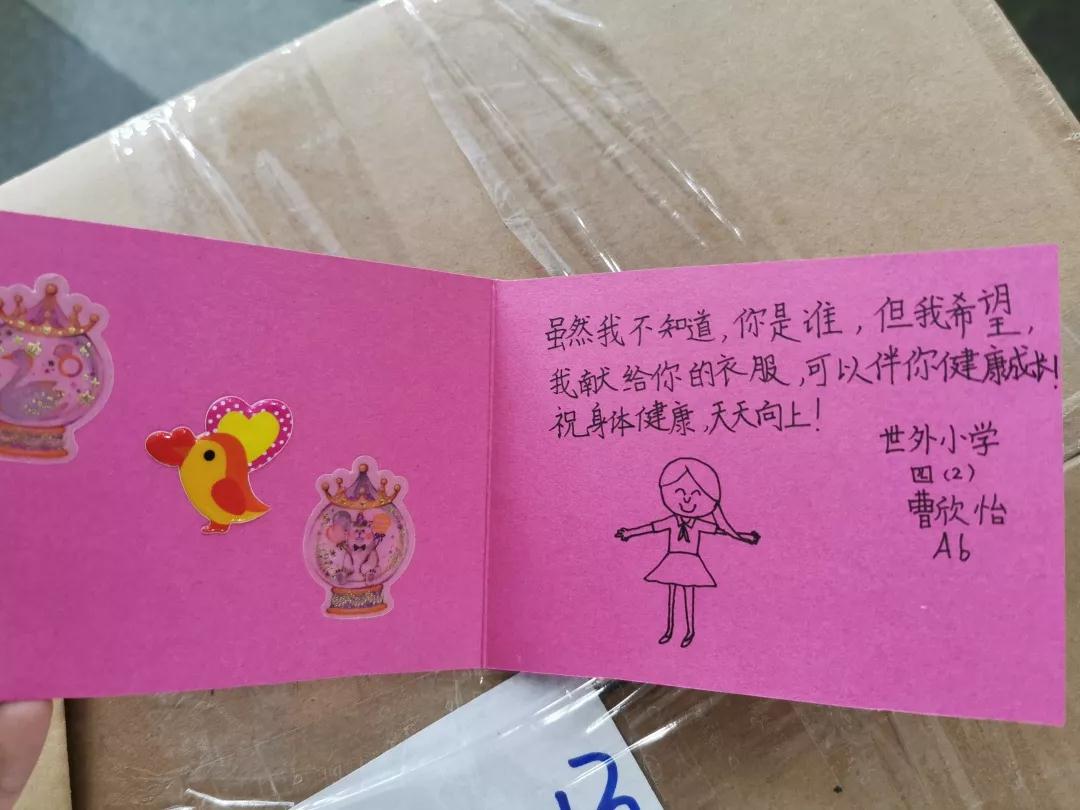 虽然我不知道,你是谁,但我希望,
我献给你的衣服,可以伴你健康成长!
祝身体健康,天天向上!
世外小学
四(2)
曹欣怡
Ab